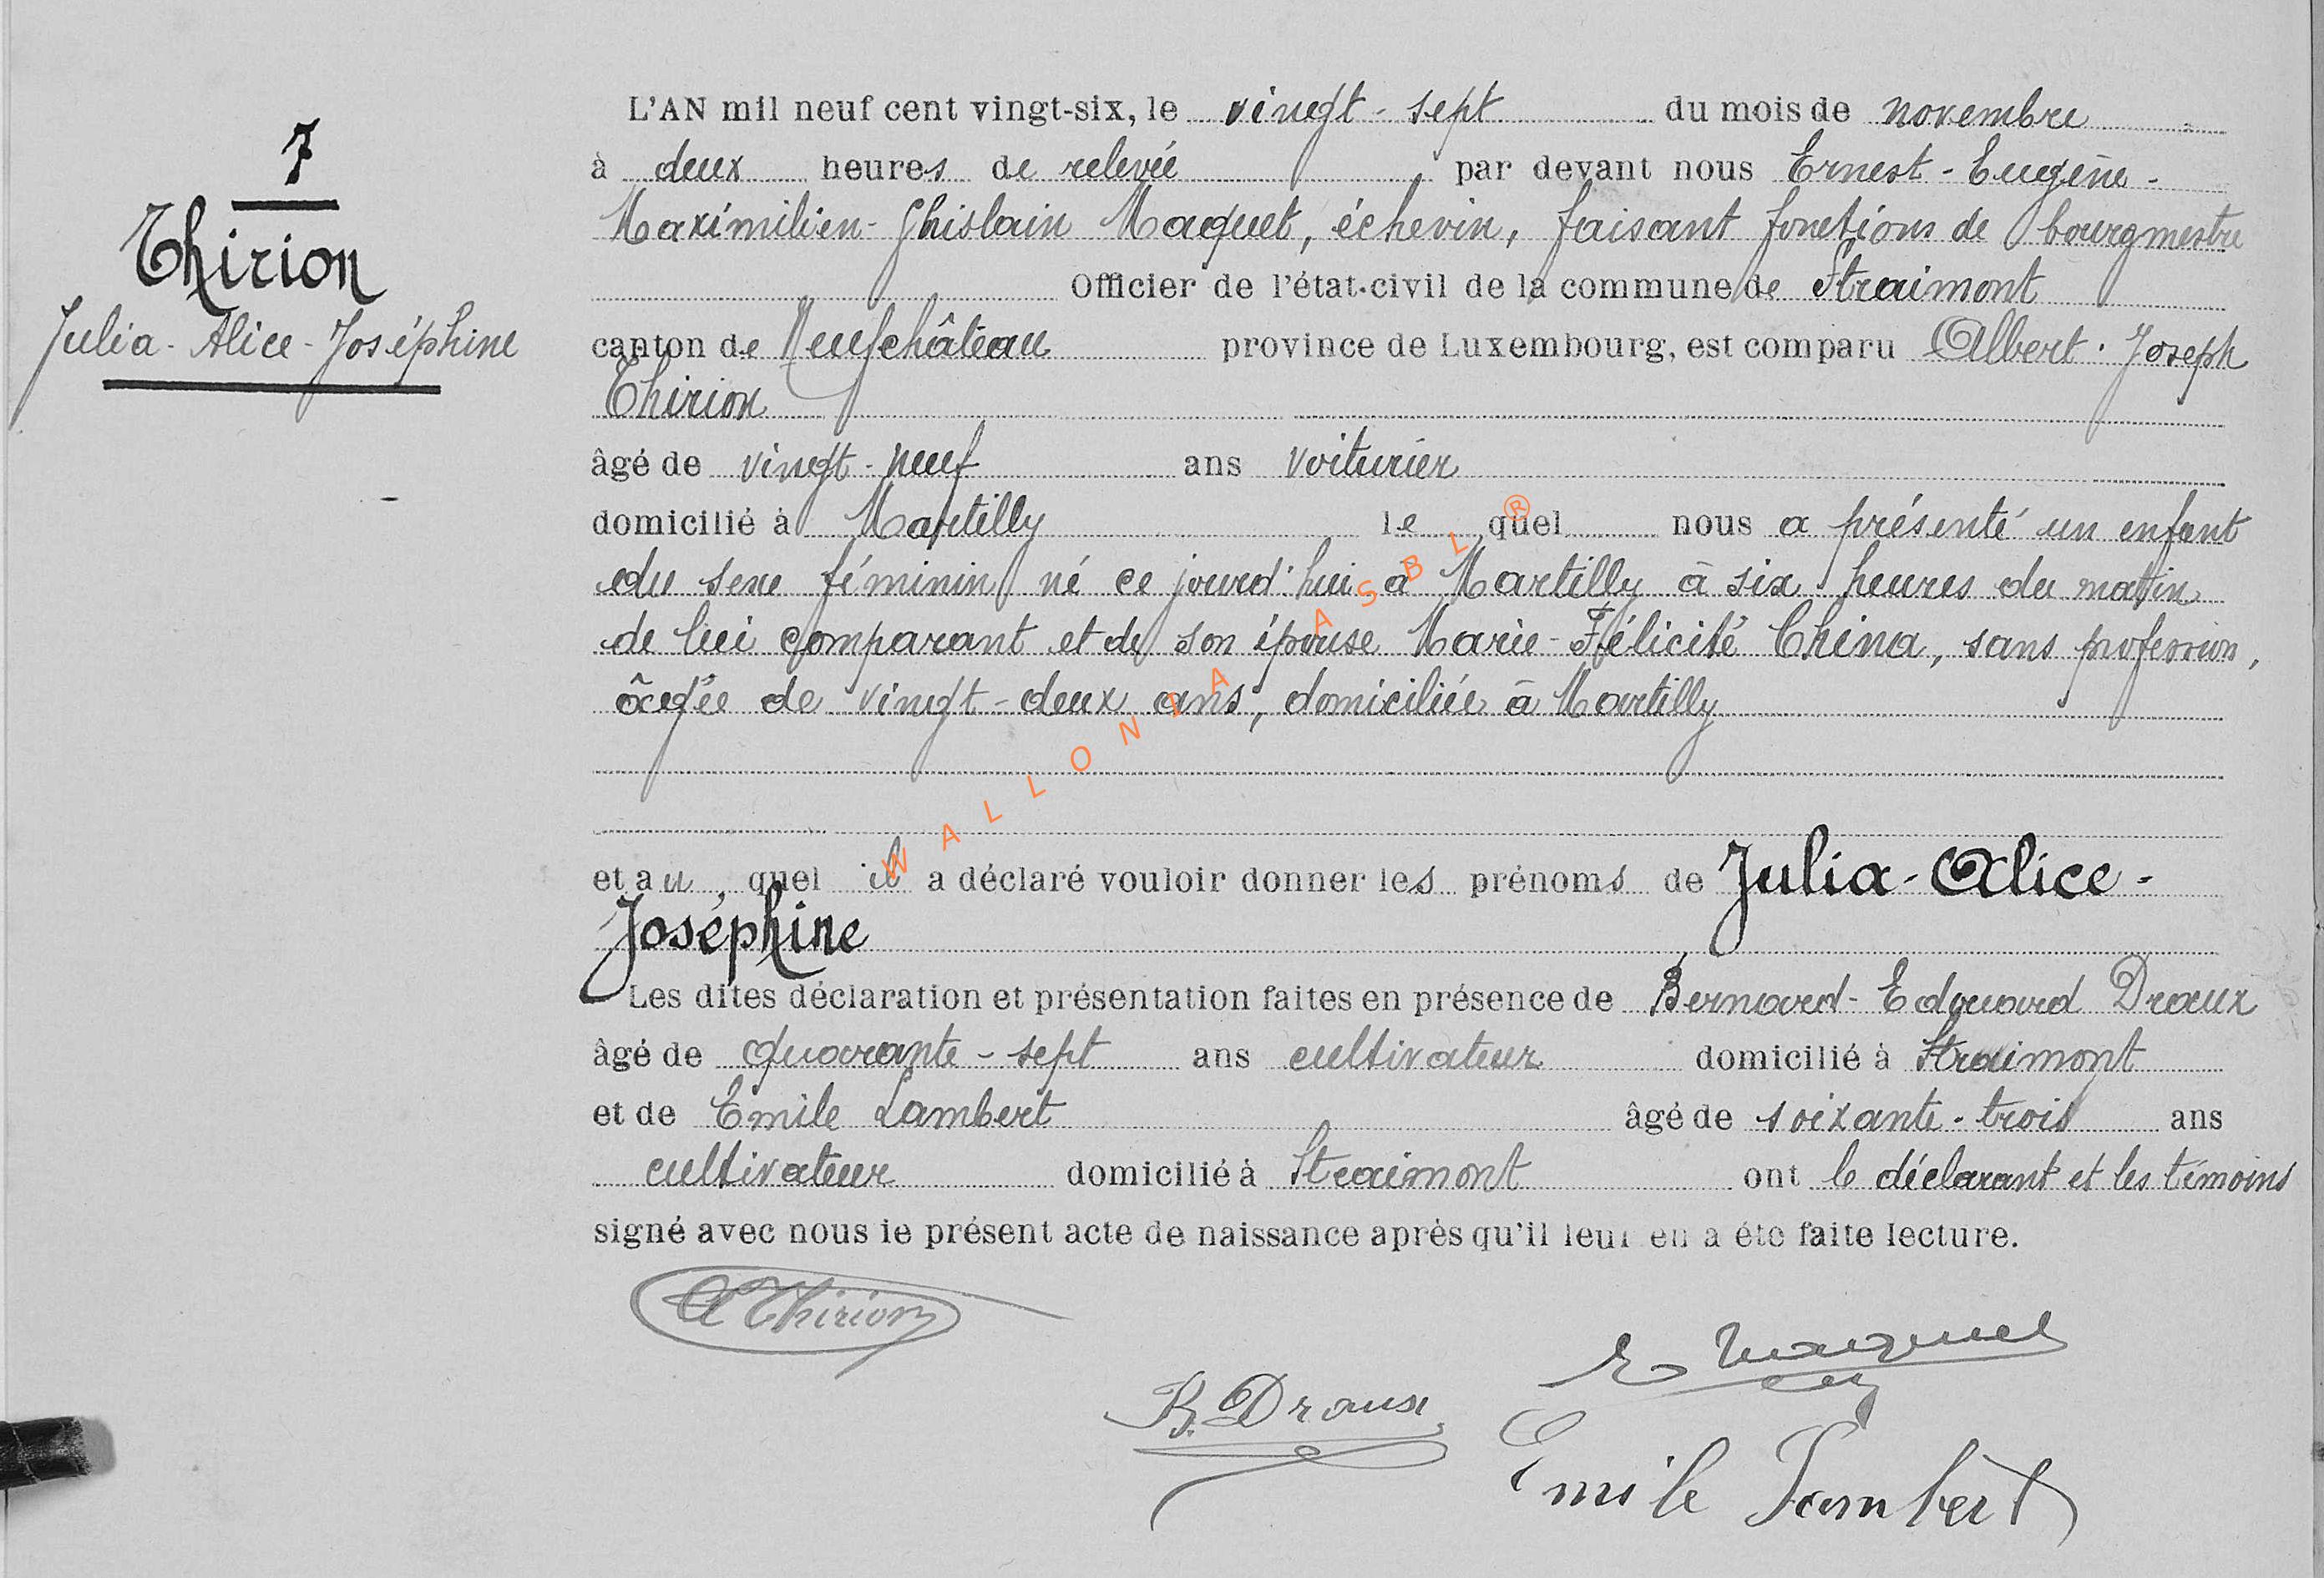 7
Thirion
Julia - Alice - Joséphine
L'AN mil neuf cent vingt-six, le vingt - sept du mois de novembre
à deux heures de relevée par devant nous Ernest - Eugène -
Maximilien - Ghislain Maquet, échevin, faisant fonctions de bourgmestre
Officier de l'état-civil de la commune de Straimont
canton de Neufchâteau province de Luxembourg, est comparu Albert - Joseph
Thirion
âgé de vingt - neuf ans voiturier
domicilié à Martilly le quel nous a présenté un enfant
du sexe féminin né ce jourd'hui à Martilly à six heures du matin
de lui comparant et de son épouse Marie - Félicité China, sans profession,
âgée de vingt - deux ans, domiciliée à Martilly
et au quel il a déclaré vouloir donner les prénoms de Julia - Alice -
Joséphine
Les dites déclaration et présentation faites en présence de Bernard - Edouard Draux
âgé de quarante - sept ans cultivateur domicilié à Straimont
et de Emile Lambert âgé de soixante - trois ans
cultivateur domicilié à Straimont ont le déclarant et les témoins
signé avec nous le présent acte de naissance après qu'il leur en a été faite lecture.
A Thirion
E Maquet
B. Draux
Emile Lambert
WALLONIA ASBL ®